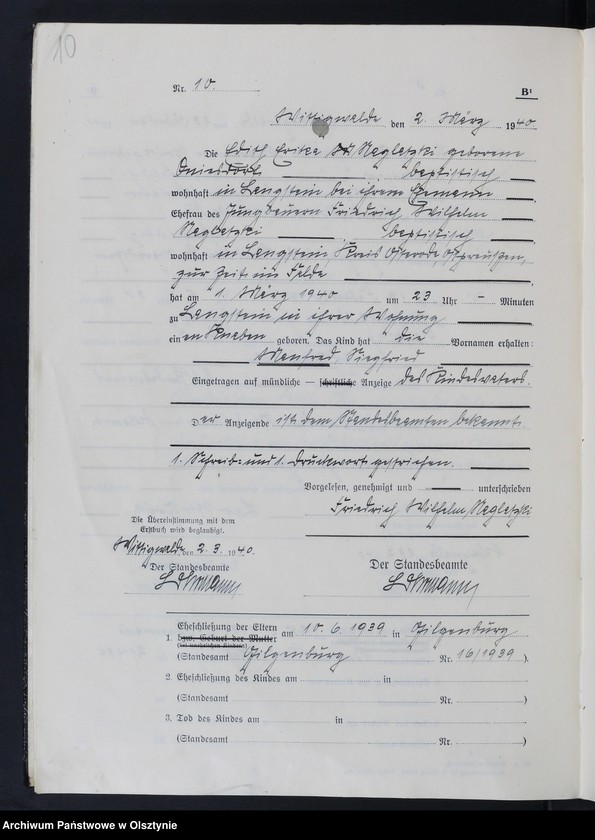 10
Nr. 10. B¹
Wittigwalde den 2. März 1940
Die Edith Erika Negletzki geborene
baptistisch
wohnhaft in Langstein bei ihrem Ehemann
Ehefrau des Jungbauern Friedrich Wilhelm
Negletzki baptistisch
wohnhaft in Langstein, Kreis Osterode, Ostpreußen,
zur Zeit im Felde
hat am 1. März 1940 um 23 Uhr – Minuten
zu Langstein in ihrer Wohnung
einen Knaben geboren. Das Kind hat die Vornamen erhalten:
Manfred, Siegfried
Eingetragen auf mündliche — schriftliche Anzeige des Kindesvaters.
Der Anzeigende ist dem Standesbeamten bekannt.
1. Schreib- und 1. Druckwort gestrichen.
Vorgelesen, genehmigt und unterschrieben
Friedrich Wilhelm Negletzki
Die Übereinstimmung mit dem
Erstbuch wird beglaubigt.
Wittigwalde den 2. 3. 1940.
Der Standesbeamte
Der Standesbeamte
Eheschließung der Eltern
1. bzw. Geburt der Mutter am 10. 6. 1939 in Gilgenburg
(bei unehelichen Kindern)
(Standesamt Gilgenburg Nr. 16/1939)
2. Eheschließung des Kindes am in
(Standesamt Nr. )
3. Tod des Kindes am in
(Standesamt Nr. )
Archiwum Państwowe w Olsztynie